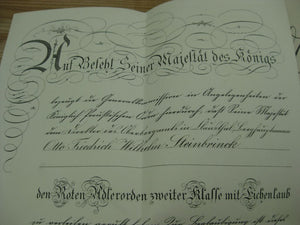 Auf Befehl Seiner Majestät des Königs
bezeugt die Generalkommission in Angelegenheiten der
Königlich Preußischen Orden hierdurch, daß Seine Majestät
dem Direktor
Otto Friedrich Wilhelm Steinbrinck
den Roten Adlerorden zweiter Klasse mit Eichenlaub
zu verleihen geruht